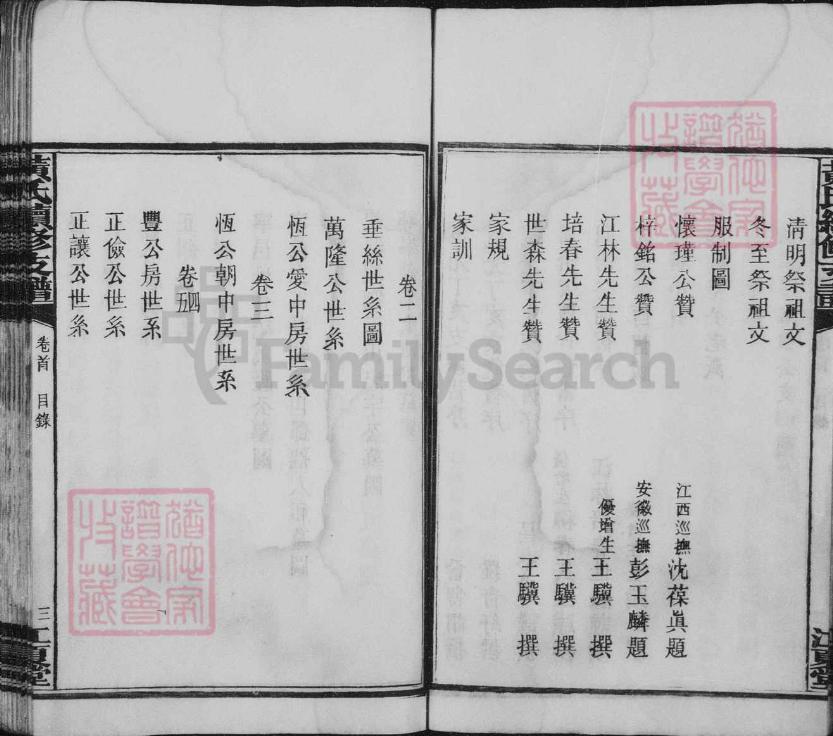 清明祭祖文
冬至祭祖文
服制圖
懷瑾公贊 江西巡撫沈葆眞題
梓銘公贊 安徽巡撫彭玉麟題
江林先生贊 優增生王驥撰
培春先生贊 王驥撰
世森先生贊 王驥撰
家規
家訓
卷二
垂絲世系圖
萬隆公世系
恆公愛中房世系
卷三
恆公朝中房世系
卷四五
豐公房世系
正儉公世系
正讓公世系
黃氏續修支譜
卷首 目錄
三
江夏堂
FamilySearch